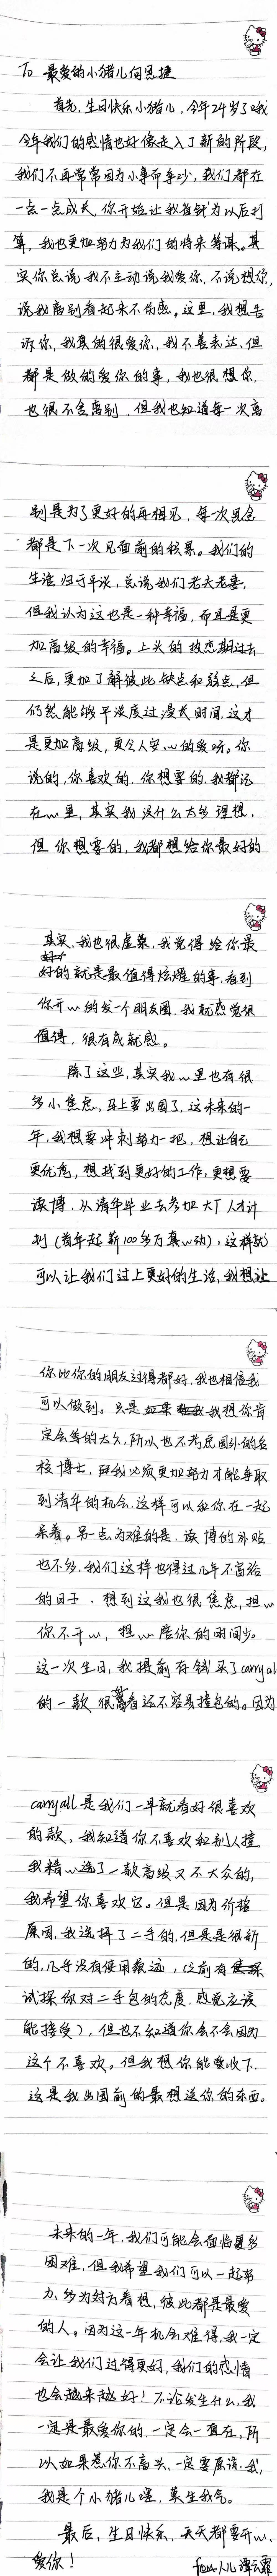 To 最爱的小猪儿向思捷
首先,生日快乐小猪儿,今年24岁了哦
今年我们的感情也好像走入了新的阶段,
我们不再常常因为小事而争吵,我们都在
一点一点成长,你开始让我省钱为以后打
算,我也更加努力为我们的将来筹谋。其
实你总说我不主动说我爱你,不说想你,
说我离别看起来不伤感。这里,我想告
诉你,我真的很爱你,我不善表达,但
都是做的爱你的事,我也很想你,
也很不舍离别,但我也知道每一次离
别是为了更好的再相见,每一次思念
都是下一次见面前的积累。我们的
生活归于平淡,总说我们老夫老妻,
但我认为这也是一种幸福,而且是更
加高级的幸福。上头的热恋期过去
之后,更加了解彼此缺点和弱点,但
仍然能够平淡度过漫长时间,这才
是更加高级,更令人安心的爱呀。你
说的,你喜欢的,你想要的,我都记
在心里,其实我没什么太多理想,
但你想要的,我都想给你最好的
其实,我也很虚荣,我觉得给你最
好的就是最值得炫耀的事,看到
你开心的发一个朋友圈,我就感觉很
值得,很有成就感。
除了这些,其实我心里也有很
多小焦虑,马上要出国了,这未来的一
年,我想要冲刺努力一把,想让自己
更优秀,想找到更好的工作,更想要
读博,从清华毕业去参加大厂人才计
划(首年起薪100多万真心动),这样就
可以让我们过上更好的生活,我想让
你比你的朋友过得都好,我也相信我
可以做到。只是我想你肯
定会等的太久,所以也不考虑国外的名
校博士,我必须更加努力才能争取
到清华的机会,这样可以和你在一起
呆着。另一点为难的是,读博的补贴
也不多,我们这样也得过几年不富裕
的日子,想到这我也很焦虑,担心
你不开心,担心陪你的时间少。
这一次生日,我提前存钱买了carryall
的一款很好看还不容易撞包的。因为
carryall是我们一早就看好很喜欢
的款,我知道你不喜欢和别人撞
我精心选了一款高级又不大众的,
我希望你喜欢它。但是因为价格
原因,我选择了二手的,但是是很新
的,几乎没有使用痕迹,(之前有
试探你对二手包的态度,感觉应该
能接受),但也不知道你会不会因为
这个不喜欢。但我想你能够收下,
这是我出国前的最想送你的东西。
未来的一年,我们可能会面临更多
困难,但我希望我们可以一起努
力,多为对方着想,彼此都是最爱
的人。因为这一年机会难得,我一定
会让我们过得更好,我们的感情
也会越来越好!不论发生什么,我
一定是最爱你的,一定会一直在,所
以如果惹你不高兴,一定要原谅我,
我是个小猪儿嘿,莫生我气。
最后,生日快乐,天天都要开心,
爱你! from 人儿谭云霏